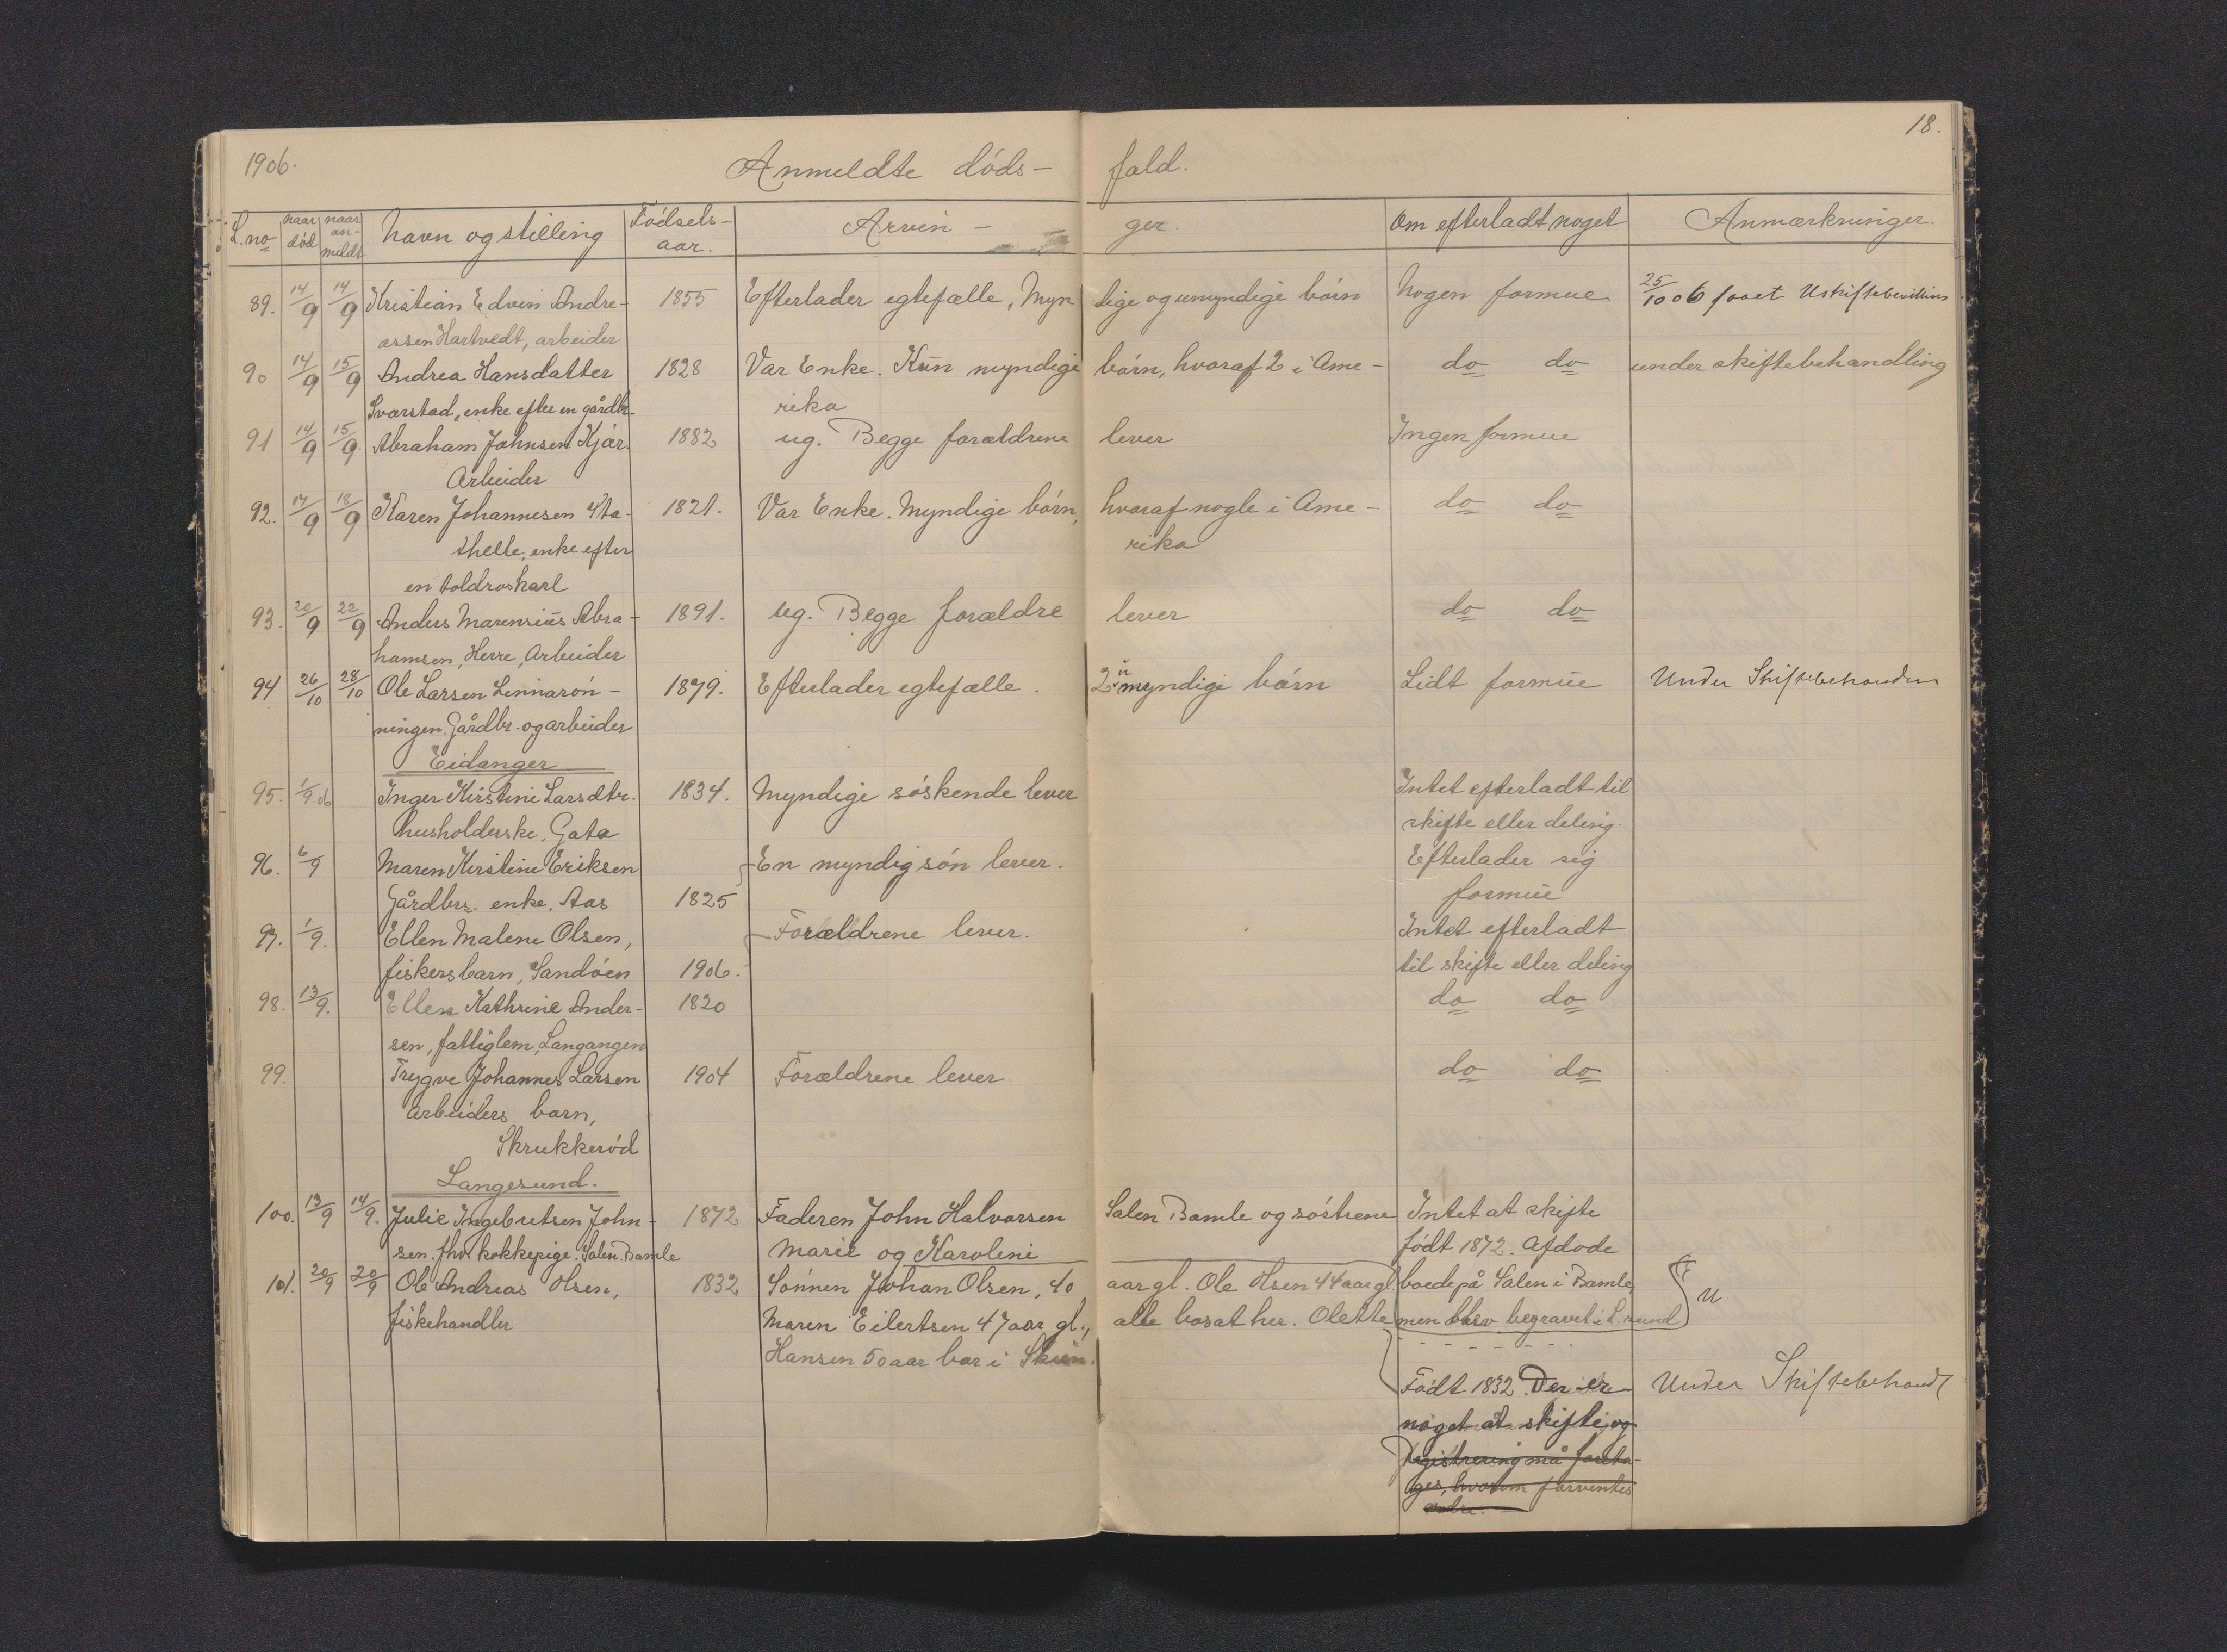 18.
1906.
Anmeldte døds- fald.
L.no naar død naar an- meldt Navn og stilling Fødsels- aar. Arvin- ger. Om efterladt noget Anmærkninger.
89. 14/9 14/9 Kristian Edvin Andre- 1855 Efterlader egtefælle, Myn dige og umyndige børn Nogen formue 25/10 06 faaet Uskiftebevilling
assen Hartvedt, arbeider
90 14/9 15/9 Andrea Hansdatter 1828 Var Enke. Kun myndige børn, hvoraf 2 i Ame- do do under skiftebehandling
Svarstad, enke efter en gårdbr. rika
91 14/9 15/9 Abraham Johnsen Kjær. 1882 ug. Begge forældrene lever Ingen formue
Arbeider
92. 17/9 18/9 Karen Johannesen Sta- 1821. Var Enke. Myndige børn, hvoraf nogle i Ame- do do
thelle, enke efter rika
en toldroskarl
93. 20/9 22/9 Anders Marensius Abra- 1891. ug. Begge forældre lever do do
hamsen, Herre, Arbeider
94 26/10 28/10 Ole Larsen 1879. Efterlader egtefælle. 2 umyndige børn Lidt formue Under Skiftebehandl
ningen. Gårdbr. og arbeider
Eidanger
95. 1/9.06 Inger Kirstine Larsdtr. 1834. Myndige søskende lever Intet efterladt til
husholderske, Gata skifte eller deling.
96. 6/9 Maren Kirstine Eriksen En myndig søn lever. Efterlader sig
Gårdbrs. enke, Aas 1825 formue
97. 1/9. Ellen Malene Olsen, Forældrene lever. Intet efterladt
fiskers barn, Sandøen 1906. til skifte eller deling
98. 13/9. Ellen Kathrine Ander- 1820 do do
sen, fattiglem, Langangen
99. Trygve Johannes Larsen 1904 Forældrene lever do do
arbeiders barn,
Skrukkerød
Langesund.
100. 13/9 14/9. Julie Ingebretsen John- 1872 Faderen John Halvorsen Salen Bamle og søstrene Intet at skifte
sen. fhv. kokkepige. Salen. Bamle Marie og Karoline født 1872. Afdøde
101. 20/9 20/9 Ole Andreas Olsen, 1832 Sønnen Johan Olsen, 40 aar gl. Ole Olsen 44 aar gl. boede på Salen i Bamle,
fiskehandler Maren Eilertsen 47 aar gl., alle bosat her. Olette men blev begravet i L.sund
Hansen 50 aar bor i Skien.
Født 1832 Der er Under Skiftebehandl
noget at skifte, og
Registrering må foreta-
ges, hvorom forventes
ordre.